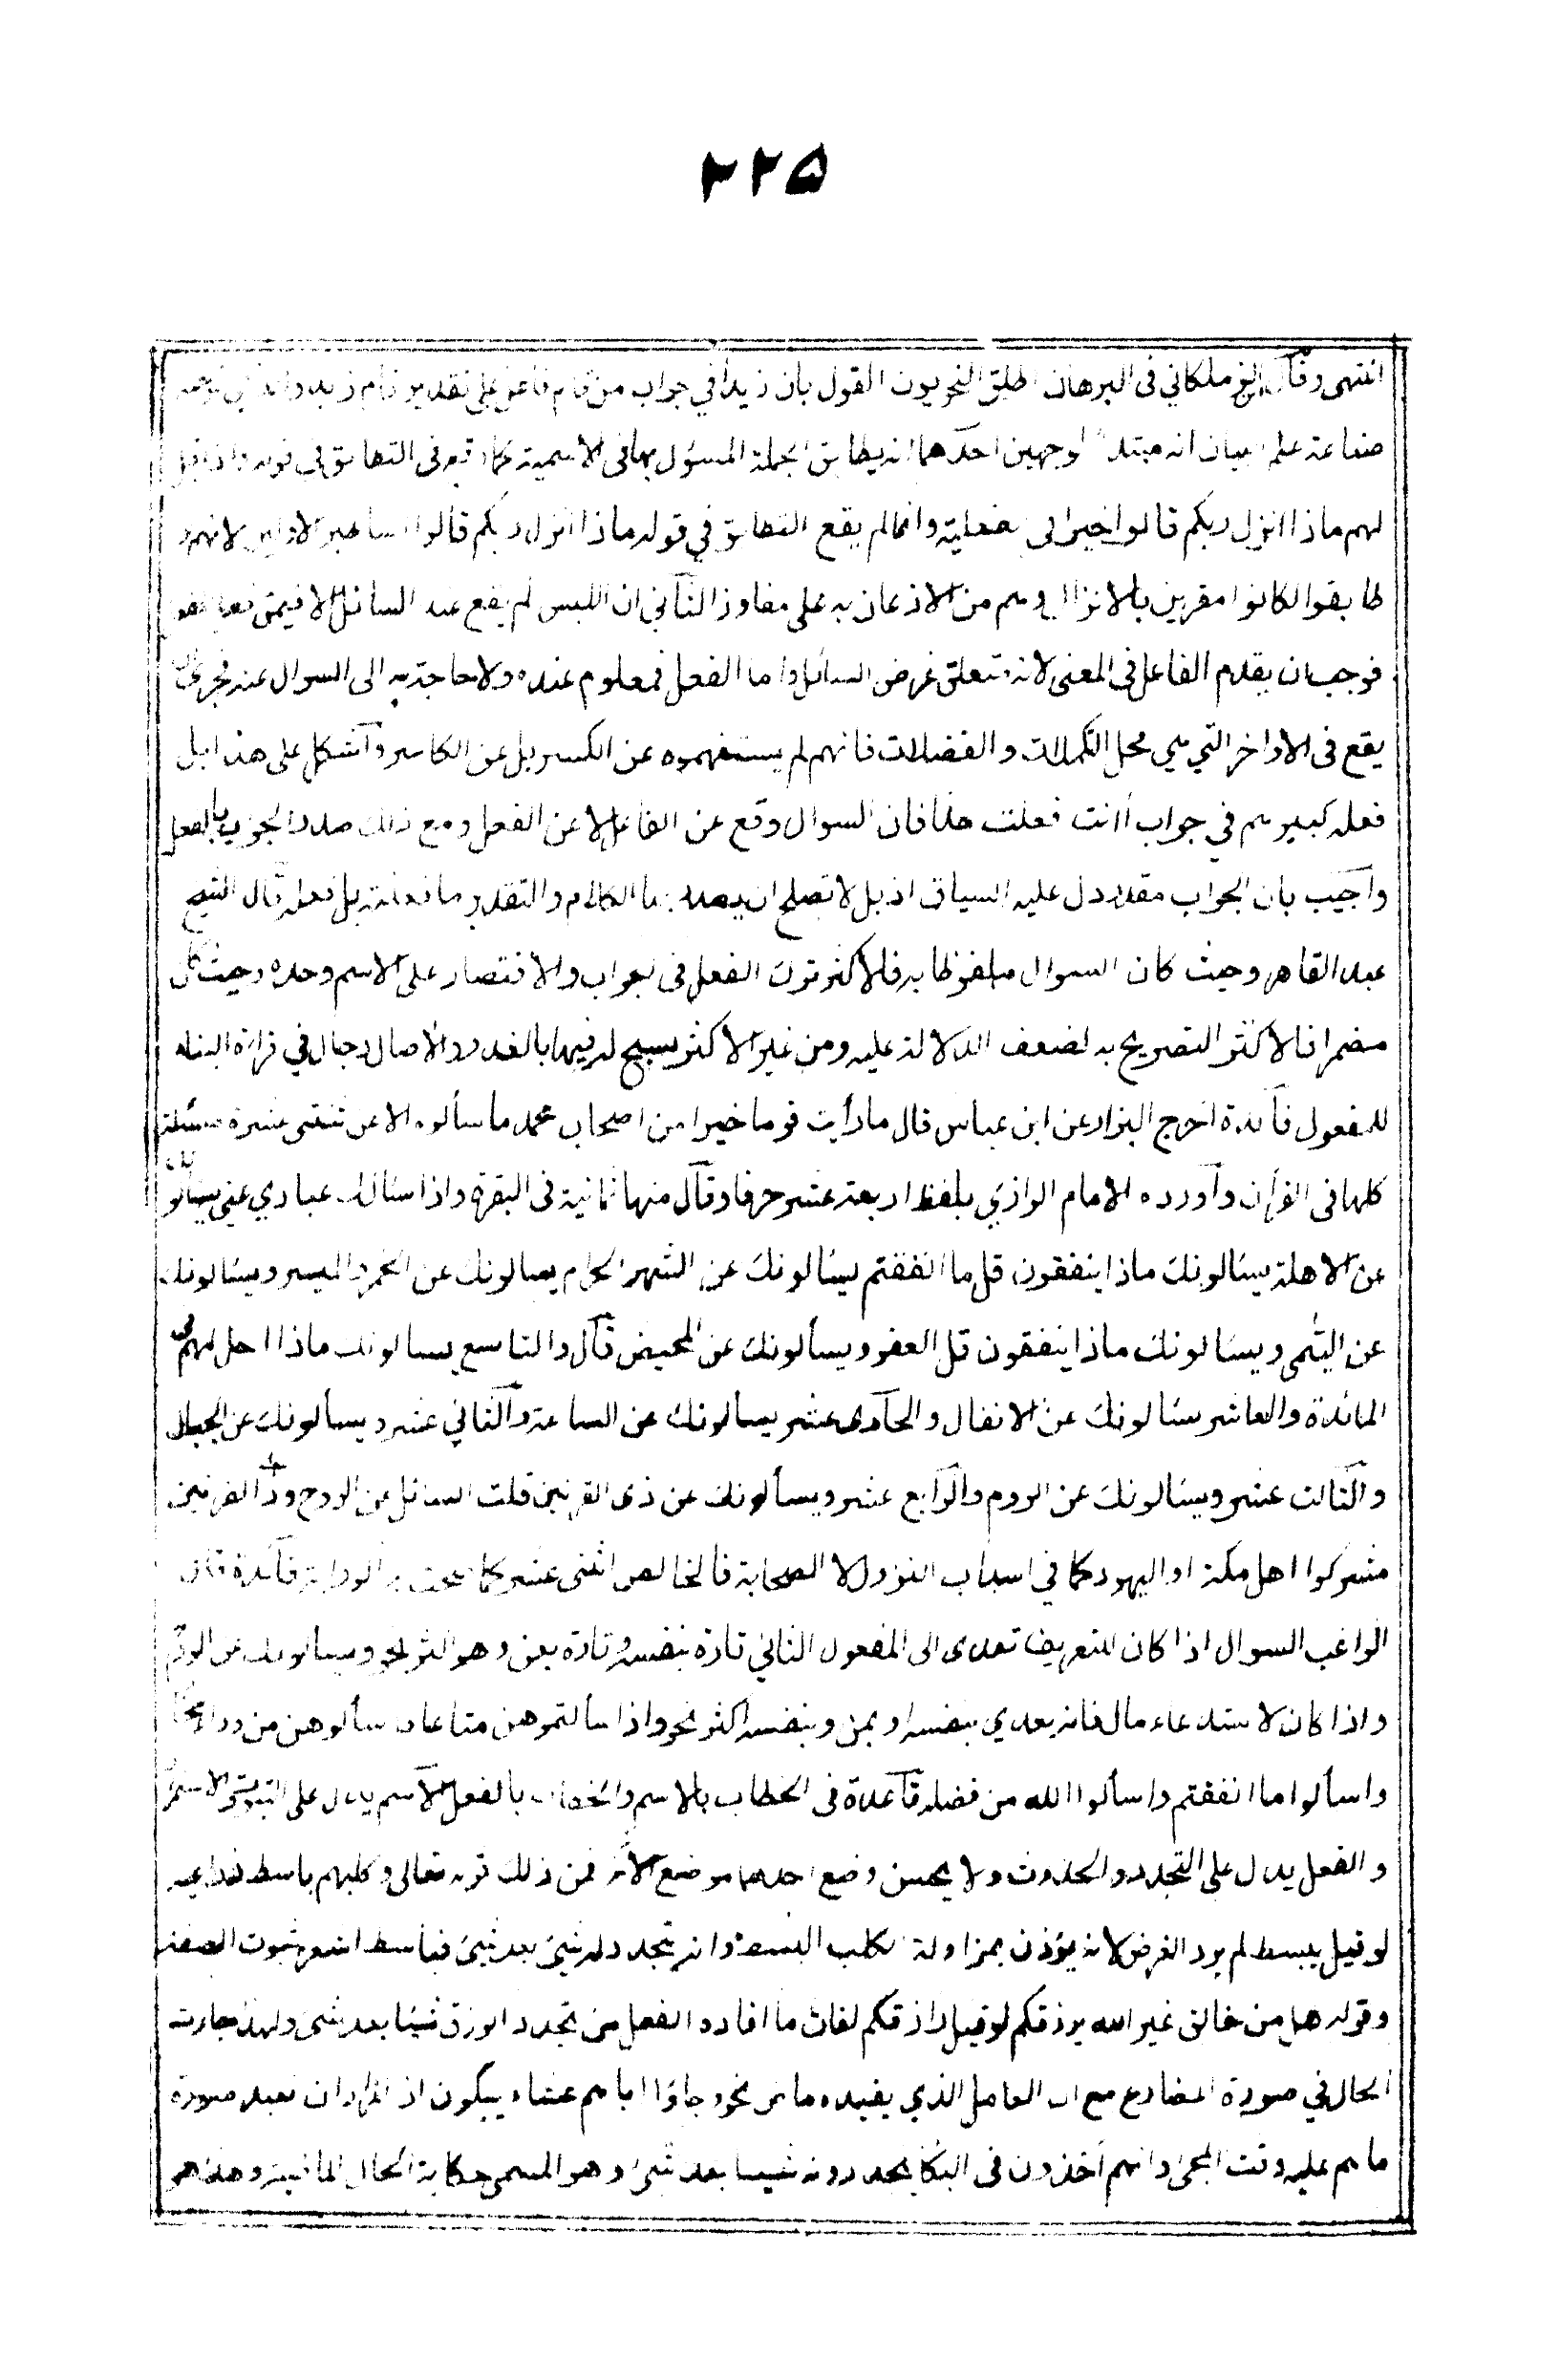 ٢٢٥
انتهى وقال الزملكاني في البرهان اطلق النحويون القول بان زيدا في جواب من قام فاعل على تقدير قام زيد والذي توجبه
صناعة علم البيان انه مبتدأ لوجهين احدهما انه يطابق الجملة المسؤل بها في الاسمية كما وقع في التطابق في قوله واذا قيل
لهم ماذا انزل ربكم قالوا خيرا في الفعلية وانما لم يقع التطابق في قوله ماذا انزل ربكم قالوا اساطير الاولين لانهم لو
طابقوا لكانوا مقرين بالانزال وهم من الاذعان به على مفاوز الثاني ان اللبس لم يقع عند السائل الا فيمن فعل الفعل
فوجب ان يقدم الفاعل في المعنى لانه متعلق غرض السائل واما الفعل فمعلوم عنده ولا حاجة به الى السوال عنه فحري ان
يقع في الاواخر التي هي محل التكملات والفضلات فانهم لم يستفهموه عن الكسر بل عن الكاسر واشكل على هذا بل
فعله كبيرهم في جواب أانت فعلت هذا فان السوال وقع عن الفاعل لا عن الفعل ومع ذلك صدر الجواب بالفعل
واجيب بان الجواب مقدر دل عليه السياق اذ بل لا تصلح ان يصدر بها الكلام والتقدير ما فعلته بل فعله قال الشيخ
عبد القاهر وحيث كان السوال ملفوظا به فالاكثر ترك الفعل في الجواب والاقتصار على الاسم وحده وحيث كان
مضمرا فالاكثر التصريح به لضعف الدلالة عليه ومن غير الاكثر يسبح له فيها بالغدو والأصال رجال في قراءة البناء
للمفعول فائدة اخرج البزار عن ابن عباس قال ما رأيت قوما خيرا من اصحاب محمد ما سألوه الا عن ثنتي عشرة مسئلة
كلها في القرأن واورده الامام الرازي بلفظ اربعة عشر حرفا وقال منها ثمانية في البقرة واذا سئالك عبادي عني يسئالونك
عن الاهلة يسئالونك ماذا ينفقون قل ما انفقتم يسئالونك عن الشهر الحرام يسالونك عن الخمر والميسر ويسئالونك
عن اليتمى ويسئالونك ماذا ينفقون قل العفو ويسألونك عن المحيض قال والتاسع يسالونك ماذا احل لهم في
المائدة والعاشر يسئالونك عن الانفال والحادى عشر يسالونك عن الساعة والثاني عشر ويسألونك عن الجبال
والثالث عشر ويسئالونك عن الروح والرابع عشر ويسألونك عن ذى القرنين قلت السائل عن الروح وذي القرنين
مشركوا اهل مكة او اليهود كما في اسباب النزول لا الصحابة فالخالص اثنى عشر كما صحت به الرواية فائدة قال
الراغب السوال اذا كان للتعريف تعدى الى المفعول الثاني تارة بنفسه وتارة بعن وهو اكثر نحو ويسألونك عن الروح
واذا كان لاستدعاء مال فانه يعدي بنفسه او بمن وبنفسه اكثر نحو واذا سألتموهن متاعا فاسألوهن من وراء حجاب
واسألوا ما انفقتم واسألوا الله من فضله قاعدة في الخطاب بالاسم والخطاب بالفعل الاسم يدل على الثبوت والاستمرار
والفعل يدل على التجدد والحدوث ولا يحسن وضع احدهما موضع الاخر فمن ذلك قوله تعالى وكلبهم باسط ذراعيه
لو قيل يبسط لم يرد الغرض لانه يؤذن بمزاولة الكلب البسط وانه يتجدد له شيئ بعد شيئ فباسط اشعر بثبوت الصفة
وقوله هل من خالق غير الله يرزقكم لو قيل رازقكم لفات ما افاده الفعل من تجدد الرزق شيئا بعد شئ ولهذا جاءت
الحال في صورة المضارع مع ان العامل الذي يفيده ماض نحو وجاؤا اباهم عشاء يبكون اذ المراد ان يفيد صورة
ما هم عليه وقت المجئ وانهم أخذون في البكا يجددونه شيئا بعد شئ وهو المسمى حكاية الحال الماضية وهذا هو